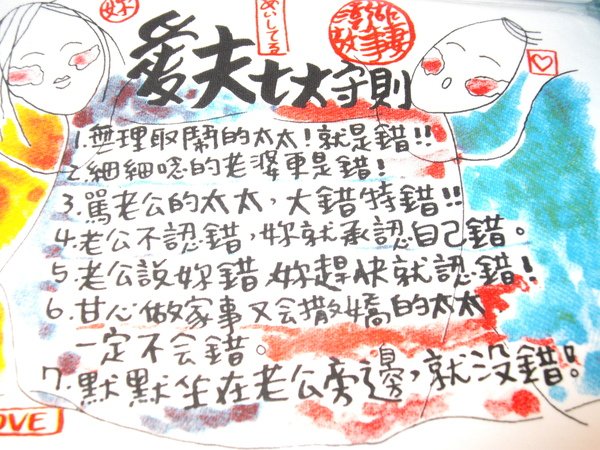 愛夫七大守則
澎湖
故事妻
1.無理取鬧的太太!就是錯!!
2.細細唸的老婆更是錯!
3.罵老公的太太,大錯特錯!!
4.老公不認錯,妳就承認自己錯。
5.老公說妳錯,妳趕快就認錯!
6.甘心做家事又会撒嬌的太太
一定不会錯。
7.默默坐在老公旁邊,就没錯!
OVE